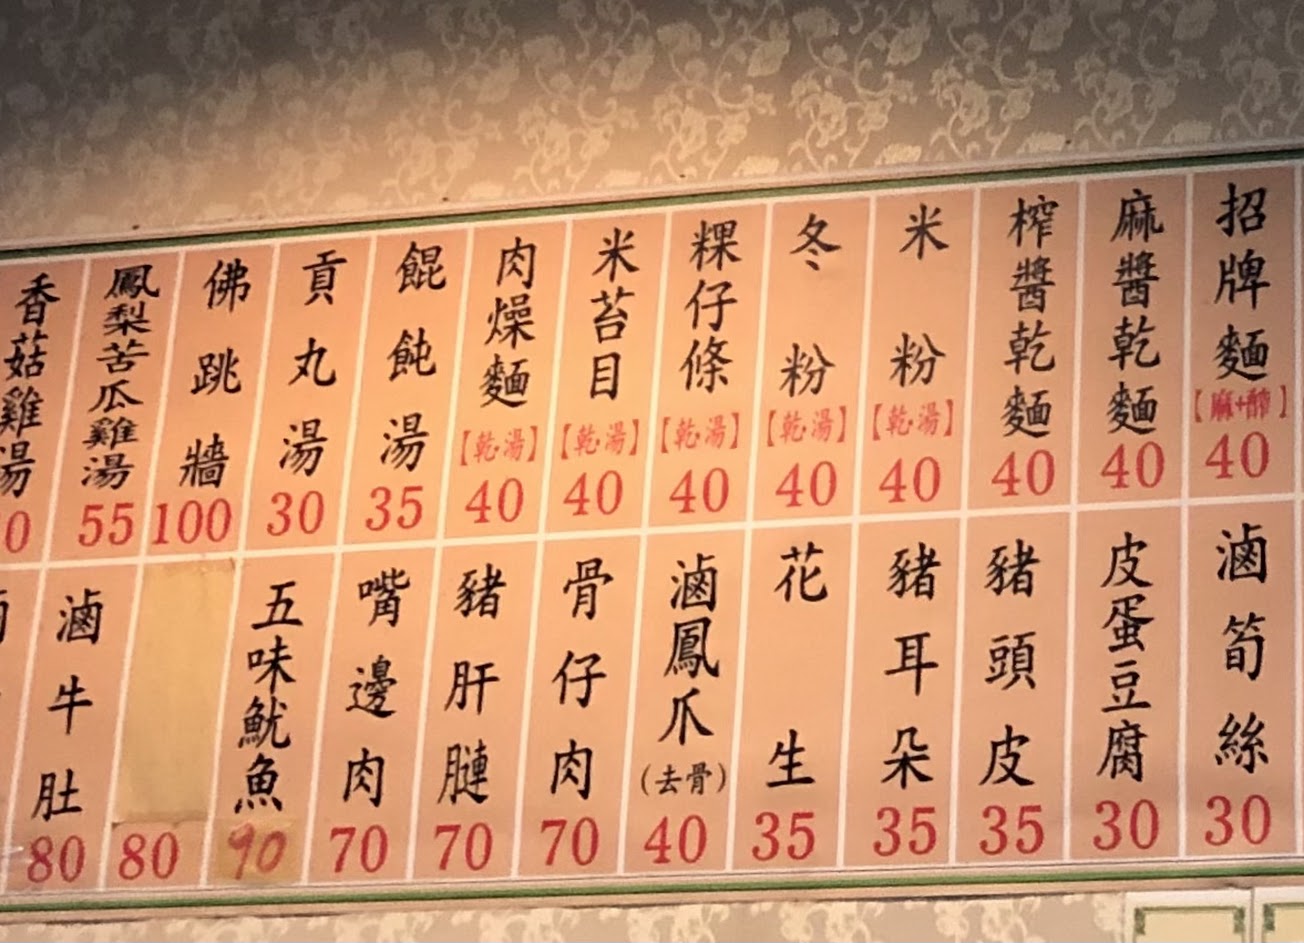 招牌麵【麻+醡】40
麻醬乾麵40
榨醬乾麵40
米粉【乾·湯】40
冬粉【乾·湯】40
粿仔條【乾·湯】40
米苔目【乾·湯】40
肉燥麵【乾·湯】40
餛飩湯35
貢丸湯30
佛跳牆100
鳳梨苦瓜雞湯55
香菇雞湯
滷筍絲30
皮蛋豆腐30
豬頭皮35
豬耳朵35
花生35
滷鳳爪(去骨)40
骨仔肉70
豬肝腱70
嘴邊肉70
五味魷魚90
80
滷牛肚80